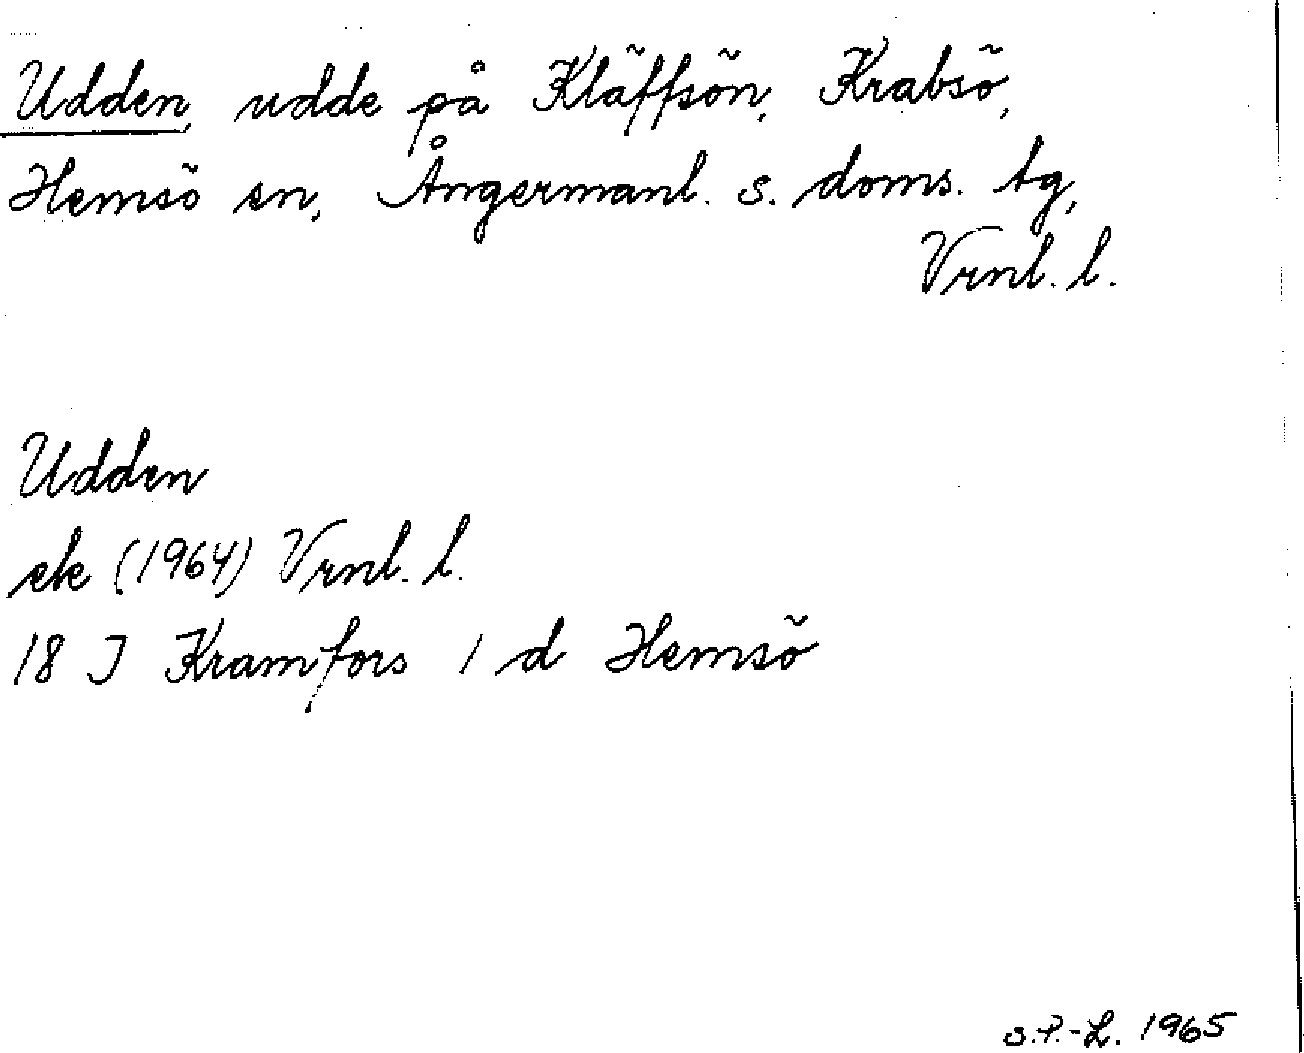 Udden, udde på Kläffsön, Krabsö,
Hemsö sn, Ångermanl. s. doms. tg,
Vrnl. l.
Udden
ek (1964) Vrnl. l.
18 J Kramfors 1 d Hemsö
S.P.-L. 1965